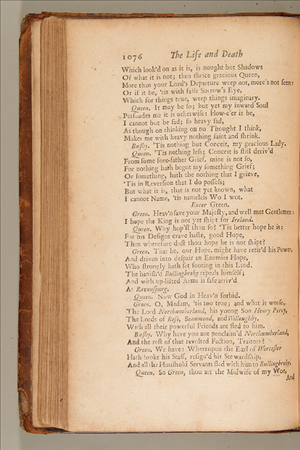 1076 The Life and Death
Which look'd on as it is, is nought but Shadows
Of what it is not; then thrice gracious Queen,
More than your Lord's Departure weep not, more's not seen:
Or if it be, 'tis with false Sorrow's Eye,
Which for things true, weep things imaginary.
Queen. It may be so; but yet my inward Soul
Perswades me it is otherwise: How-e'er it be,
I cannot but be sad; so heavy sad,
As though on thinking on no Thought I think,
Makes me with heavy nothing faint and shrink.
Bushy. 'Tis nothing but Conceit, my gracious Lady.
Queen. 'Tis nothing less; Conceit is still deriv'd
From some fore-father Grief, mine is not so,
For nothing hath begot my something Grief;
Or something, hath the nothing that I grieve,
'Tis in Reversion that I do possess;
But what it is, that is not yet known, what
I cannot Name, 'tis nameless Wo I wot.
Enter Green.
Green. Heav'n save your Majesty, and well met Gentlemen:
I hope the King is not yet shipt for Ireland.
Queen. Why hop'st thou so? 'Tis better hope he is:
For his Designs crave haste, good Hope,
Then wherefore dost thou hope he is not shipt?
Green. That he, our Hope, might have retir'd his Power,
And driven into despair an Enemies Hope,
Who strongly hath set footing in this Land.
The banish'd Bullingbroke repeals himself;
And with up-lifted Arms is safe arriv'd
At Ravenspurg.
Queen. Now God in Heav'n forbid.
Green. O, Madam, 'tis too true; and what is worse,
The Lord Northumberland, his young Son Henry Percy,
The Lords of Ross, Beaumond, and Willoughby,
With all their powerful Friends are fled to him.
Bushy. Why have you not proclaim'd Northumberland,
And the rest of that revolted Faction, Traitors?
Green. We have: Whereupon the Earl of Worcester
Hath broke his Staff, resign'd his Stewardship,
And all the Houshold Servants fled with him to Bullingbroke.
Queen. So Green, thou art the Midwife of my Woe,
And